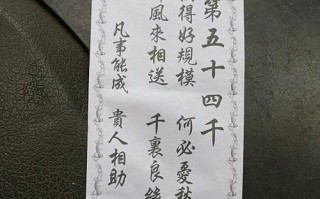 第五十四
得好規模 何必憂
風來相送 千裏良緣
凡事能成 貴人相助